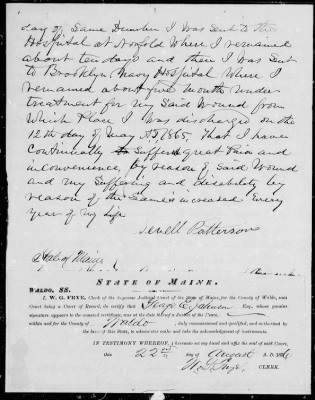 day of Same Number I was Sent to the
Hospital at Norfold Where I remained
about ten days and then I was Sent
to Brooklyn Navy Hospital Where I
remained about five Month under
treatment for my Said Wound from
Which Place I was discharged on the
12th day of May A.D. 1865, That I have
Continually to Suffer great Pain and
inconvenience by reason of Said Wound
and my Suffering and disability by
reason of the Same increased Every
Year of my life
Sewell Patterson
State of Maine
STATE OF MAINE.
WALDO, SS.
I, W. G. FRYE, Clerk of the Supreme Judicial Court of the State of Maine, for the County of Waldo, said
Court being a Court of Record, do certify that George E. Johnson Esq., whose genuine
signature appears to the annexed certificate, was at the date thereof a Justice of the Peace,
within and for the County of Waldo, duly commissioned and qualified, and so authorized by
the laws of this State, to administer oaths and take the acknowledgment of instruments.
IN TESTIMONY WHEREOF, I hereunto set my hand and affix the seal of said Court,
this 22nd day of August A. D. 187
W. G. Frye, CLERK.